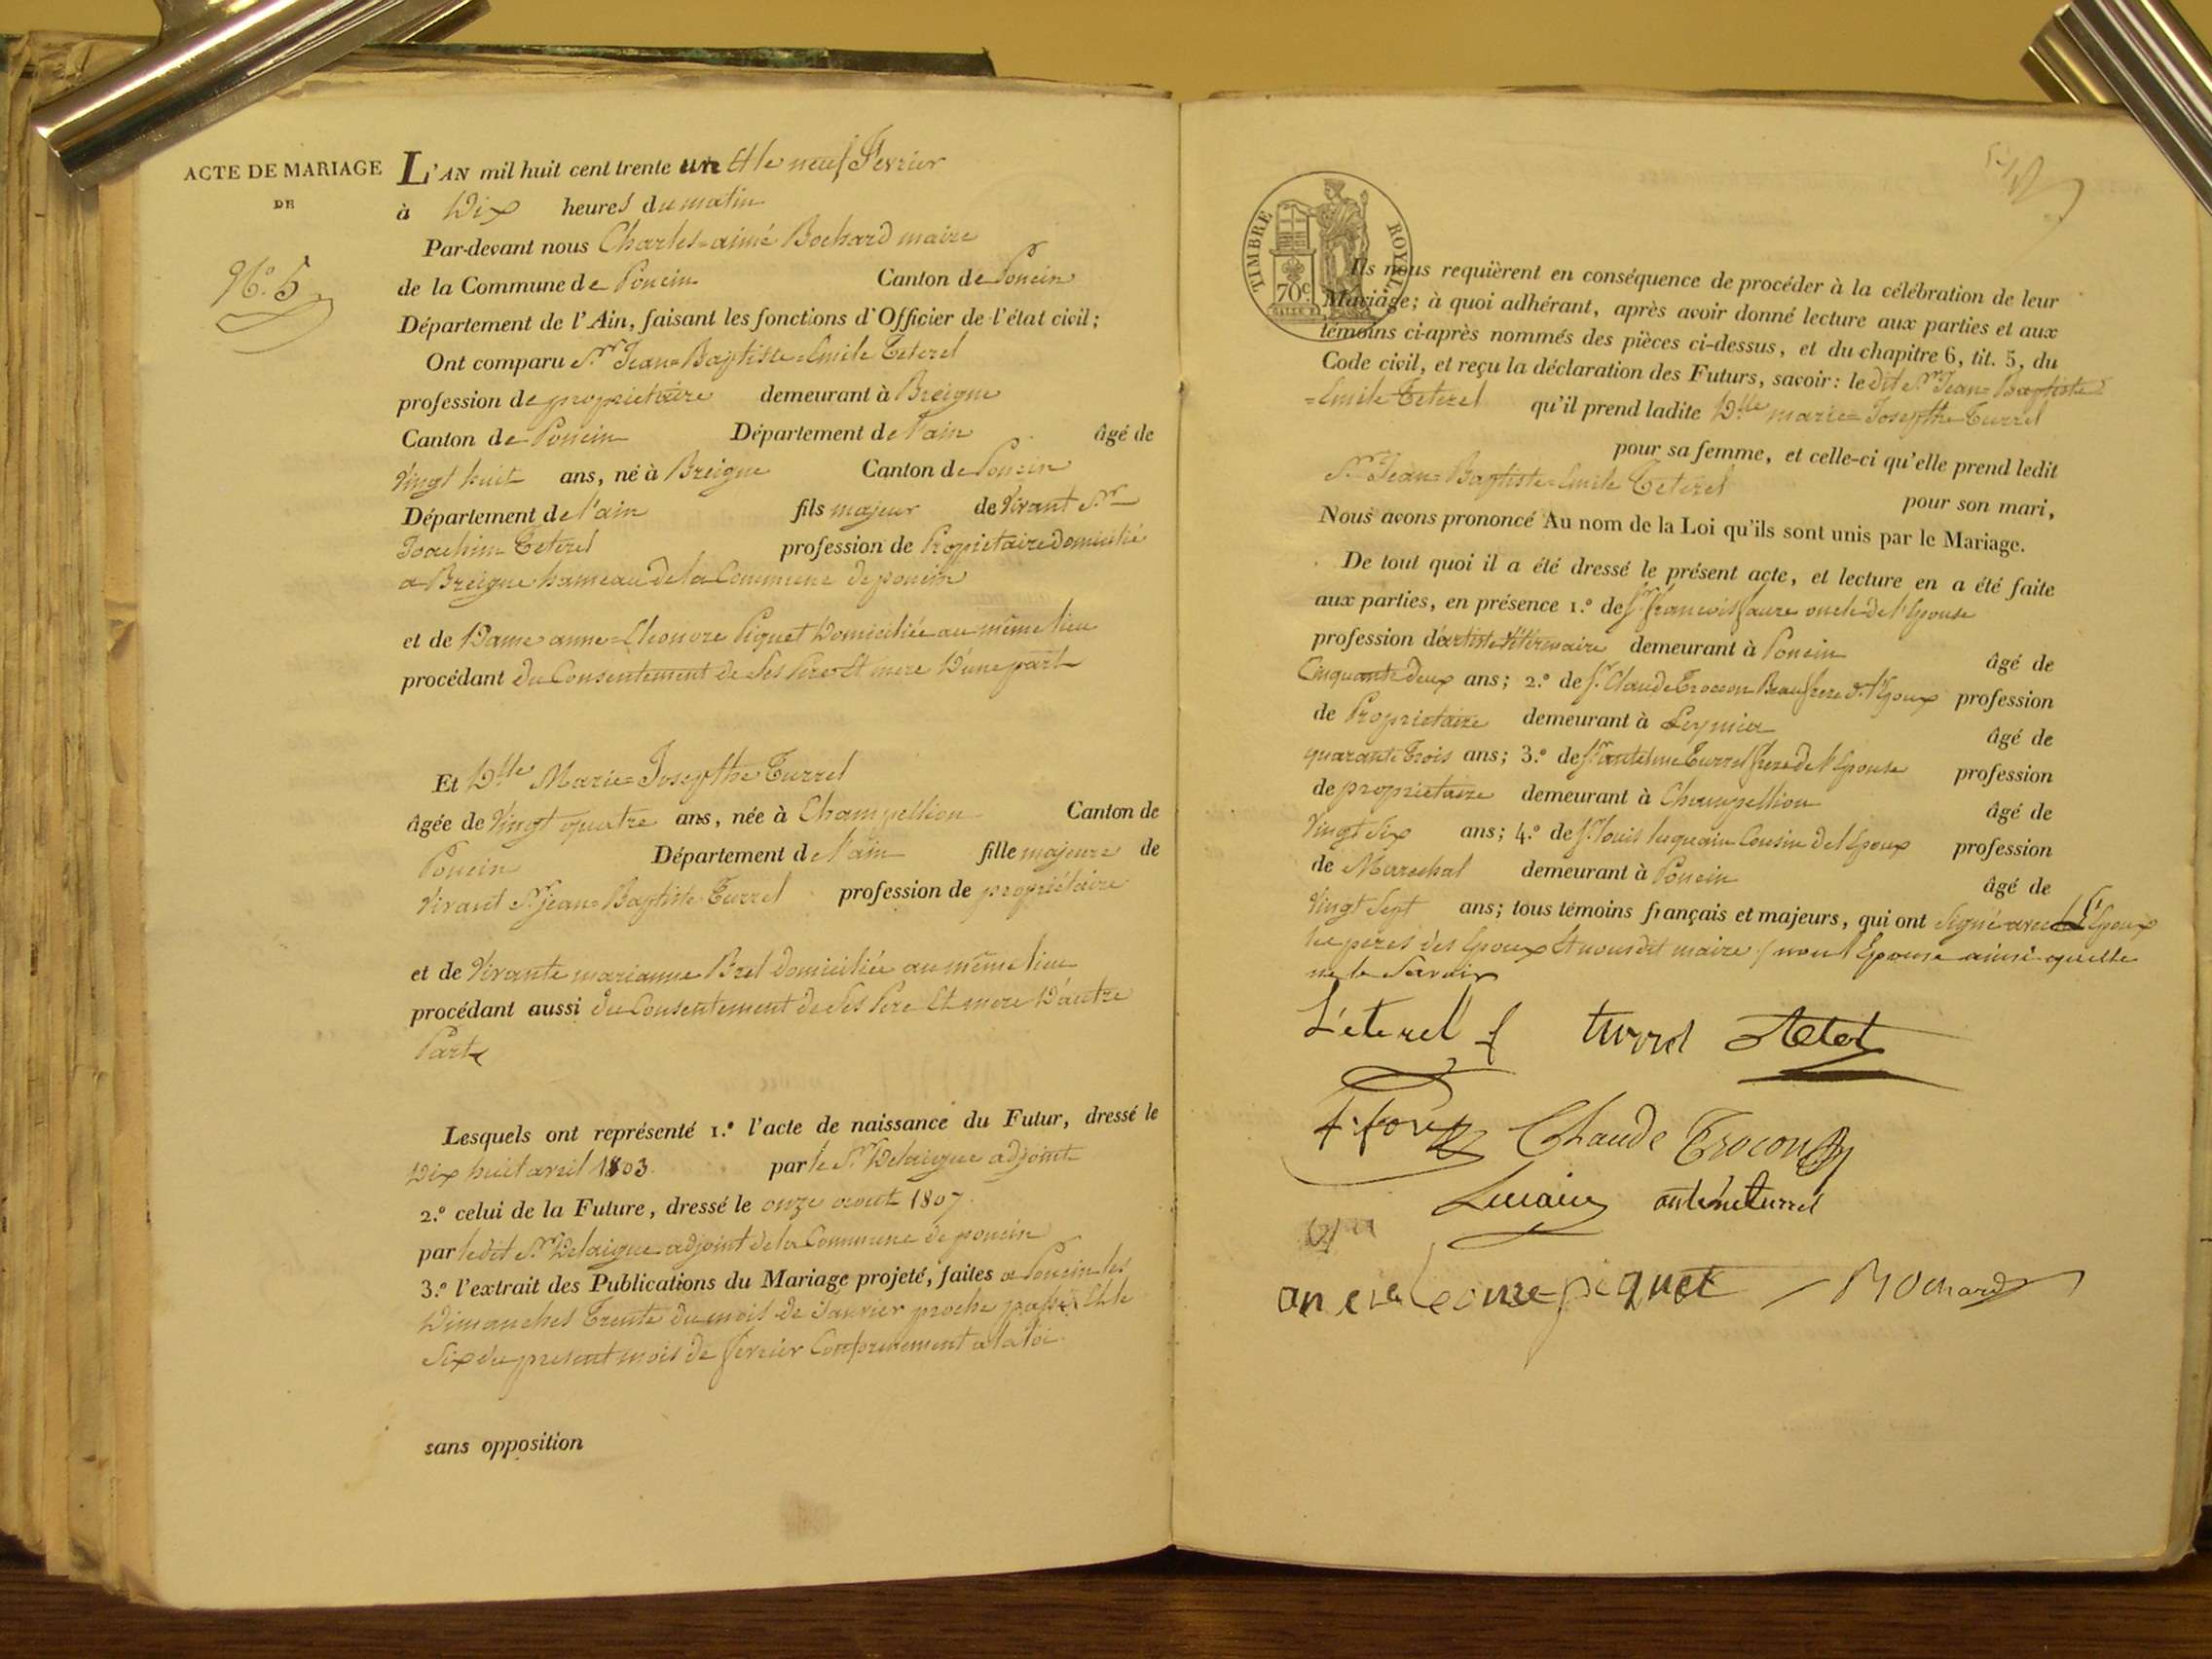 ACTE DE MARIAGE
DE
N.o 5
L'AN mil huit cent trente un Et le neuf Fevrier
à Dix heures du matin
Par-devant nous Charles=aimé Bochard maire
de la Commune de Poncin Canton de Poncin
Département de l'Ain, faisant les fonctions d'Officier de l'état civil;
Ont comparu S.r Jean=Baptiste=Emile Teterel
profession de proprietaire demeurant à Breigne
Canton de Poncin Département de l'ain âgé de
Vingt huit ans, né à Breigne Canton de Poncin
Département de l'ain fils majeur de Vivant S.r
Joachim Teterel profession de Propietaire Domicilié
a Breigne hameau de la Commune de poncin
et de Dame anne=Eleonore Piquet Domiciliée au même lieu
procédant du Consentement de Ses Pere Et mere D'une part
Et D.lle Marie=Josepthe Turrel
âgée de Vingt quatre ans, née à Champellion Canton de
Poncin Département de l'ain fille majeure de
Vivant S.r jean=Baptiste Turrel profession de propriétaire
et de Vivante marianne Bret Domiciliée au même lieu
procédant aussi du Consentement de Ses Pere Et mere D'autre
Part
Lesquels ont représenté 1.o l'acte de naissance du Futur, dressé le
Dix huit avril 1803 par le S.r Delaigue adjoint
2.o celui de la Future, dressé le onze aout 1807
par le dit S.r Delaigue adjoint de la Commune de poncin
3.o l'extrait des Publications du Mariage projeté, faites a Poncin les
Dimanches Trente du mois de Janvier proche passé Et le
Six du present mois de fevrier Conformement a la loi
sans opposition
TIMBRE ROYAL
70c
Ils nous requièrent en conséquence de procéder à la célébration de leur
Mariage; à quoi adhérant, après avoir donné lecture aux parties et aux
témoins ci-après nommés des pièces ci-dessus, et du chapitre 6, tit. 5, du
Code civil, et reçu la déclaration des Futurs, savoir: le dit S.r Jean=Baptiste
=Emile Teterel qu'il prend ladite D.lle marie=Josepthe Turrel
pour sa femme, et celle-ci qu'elle prend ledit
S.r Jean=Baptiste=Emile Teterel pour son mari,
Nous avons prononcé Au nom de la Loi qu'ils sont unis par le Mariage.
De tout quoi il a été dressé le présent acte, et lecture en a été faite
aux parties, en présence 1.o de S.r francois faure oncle de l'Epouse
profession d'artiste Vétérinaire demeurant à Poncin âgé de
Cinquante deux ans; 2.o de S.r Claude Trocon Beaufrere de l'Epoux profession
de Proprietaire demeurant à Leymiat âgé de
quarante Trois ans; 3.o de S.r antelme Turrel frere de l'Epouse profession
de proprietaire demeurant à Champellion âgé de
Vingt Six ans; 4.o de S.r louis luquain Cousin de l'Epoux profession
de Marechal demeurant à Poncin âgé de
Vingt Sept ans; tous témoins français et majeurs, qui ont Signé avec L'Epoux
les peres des Epoux Et nous dit maire / non l'Epouse ainsi qu'elle
ne le Savoir
turrel
Claude Trocon
piquet
Bochard